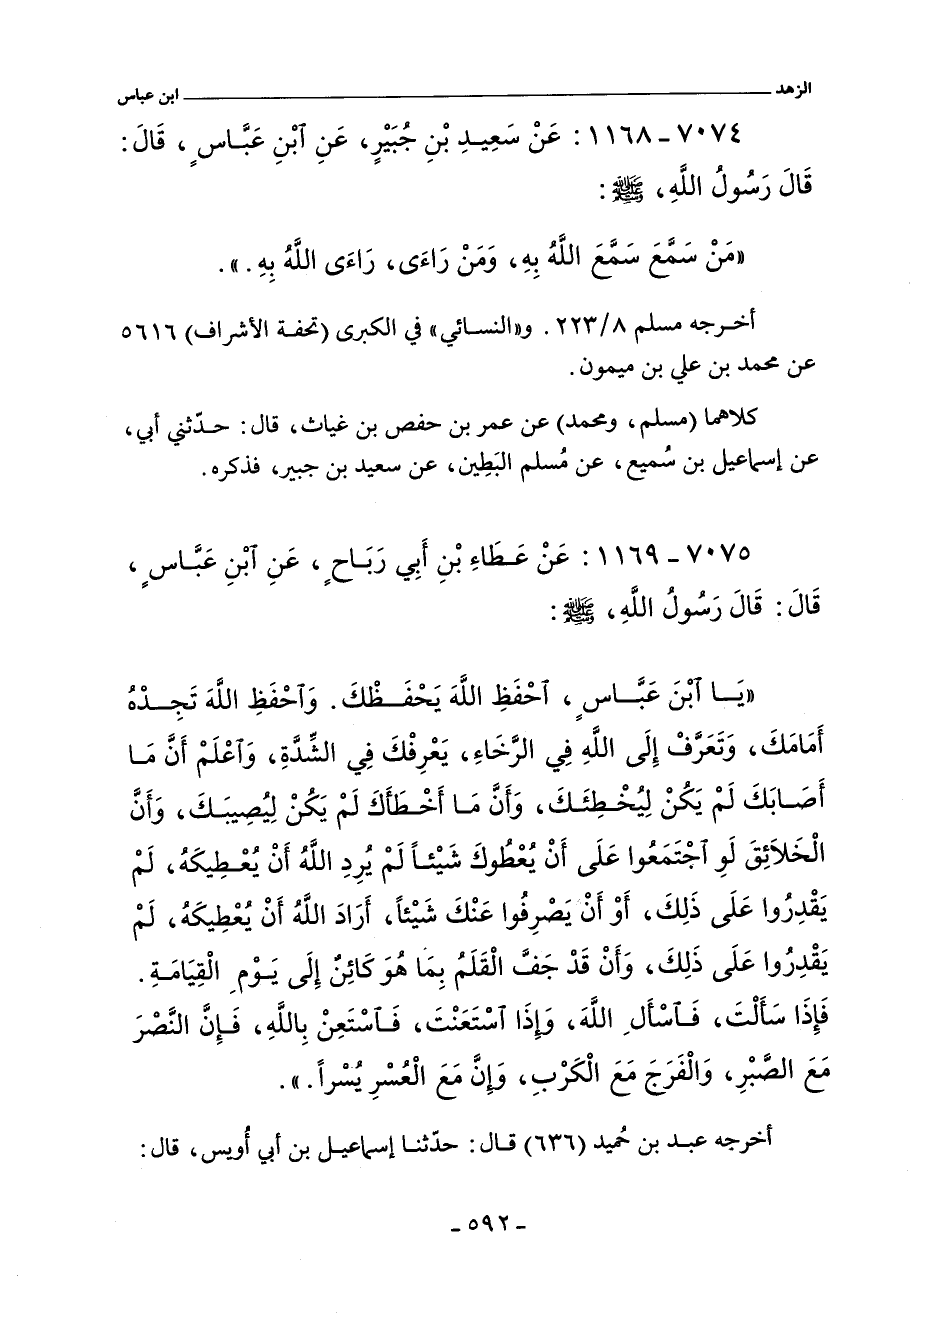 الزهد ــــــ ابن عباس
٧٠٧٤ ـ ١١٦٨ : عَنْ سَعِيدِ بْنِ جُبَيْرٍ، عَنِ ٱبْنِ عَبَّاسٍ، قَالَ :
قَالَ رَسُولُ اللَّهِ، ﷺ :
«مَنْ سَمَّعَ سَمَّعَ اللَّهُ بِهِ، وَمَنْ رَاءَى، رَاءَى اللَّهُ بِهِ.».
أخرجه مسلم ٢٢٣/٨ . و«النسائي» في الكبرى (تحفة الأشراف) ٥٦١٦
عن محمد بن علي بن ميمون .
كلاهما (مسلم، ومحمد) عن عمر بن حفص بن غياث، قال : حدّثني أبي،
عن إسماعيل بن سُميع، عن مُسلم البَطِين، عن سعيد بن جبير، فذكره .
٧٠٧٥ ـ ١١٦٩ : عَنْ عَطَاءِ بْنِ أَبِي رَبَاحٍ، عَنِ ٱبْنِ عَبَّاسٍ،
قَالَ : قَالَ رَسُولُ اللَّهِ، ﷺ :
«يَا ٱبْنَ عَبَّاسٍ، ٱحْفَظِ اللَّهَ يَحْفَظْكَ . وَٱحْفَظِ اللَّهَ تَجِدْهُ
أَمَامَكَ، وَتَعَرَّفْ إِلَى اللَّهِ فِي الرَّخَاءِ، يَعْرِفْكَ فِي الشِّدَّةِ، وَٱعْلَمْ أَنَّ مَا
أَصَابَكَ لَمْ يَكُنْ لِيُخْطِئَكَ، وَأَنَّ مَا أَخْطَأَكَ لَمْ يَكُنْ لِيُصِيبَكَ، وَأَنَّ
الْخَلَائِقَ لَوِ ٱجْتَمَعُوا عَلَى أَنْ يُعْطُوكَ شَيْئاً لَمْ يُرِدِ اللَّهُ أَنْ يُعْطِيكَهُ، لَمْ
يَقْدِرُوا عَلَى ذَلِكَ، أَوْ أَنْ يَصْرِفُوا عَنْكَ شَيْئاً، أَرَادَ اللَّهُ أَنْ يُعْطِيكَهُ، لَمْ
يَقْدِرُوا عَلَى ذَلِكَ، وَأَنْ قَدْ جَفَّ الْقَلَمُ بِمَا هُوَ كَائِنٌ إِلَى يَوْمِ الْقِيَامَةِ .
فَإِذَا سَأَلْتَ، فَٱسْأَلِ اللَّهَ، وَإِذَا ٱسْتَعَنْتَ، فَٱسْتَعِنْ بِاللَّهِ، فَإِنَّ النَّصْرَ
مَعَ الصَّبْرِ، وَالْفَرَجَ مَعَ الْكَرْبِ، وَإِنَّ مَعَ الْعُسْرِ يُسْراً.».
أخرجه عبد بن حُميد (٦٣٦) قال : حدّثنا إسماعيل بن أبي أُويس، قال :
ـ ٥٩٢ ـ